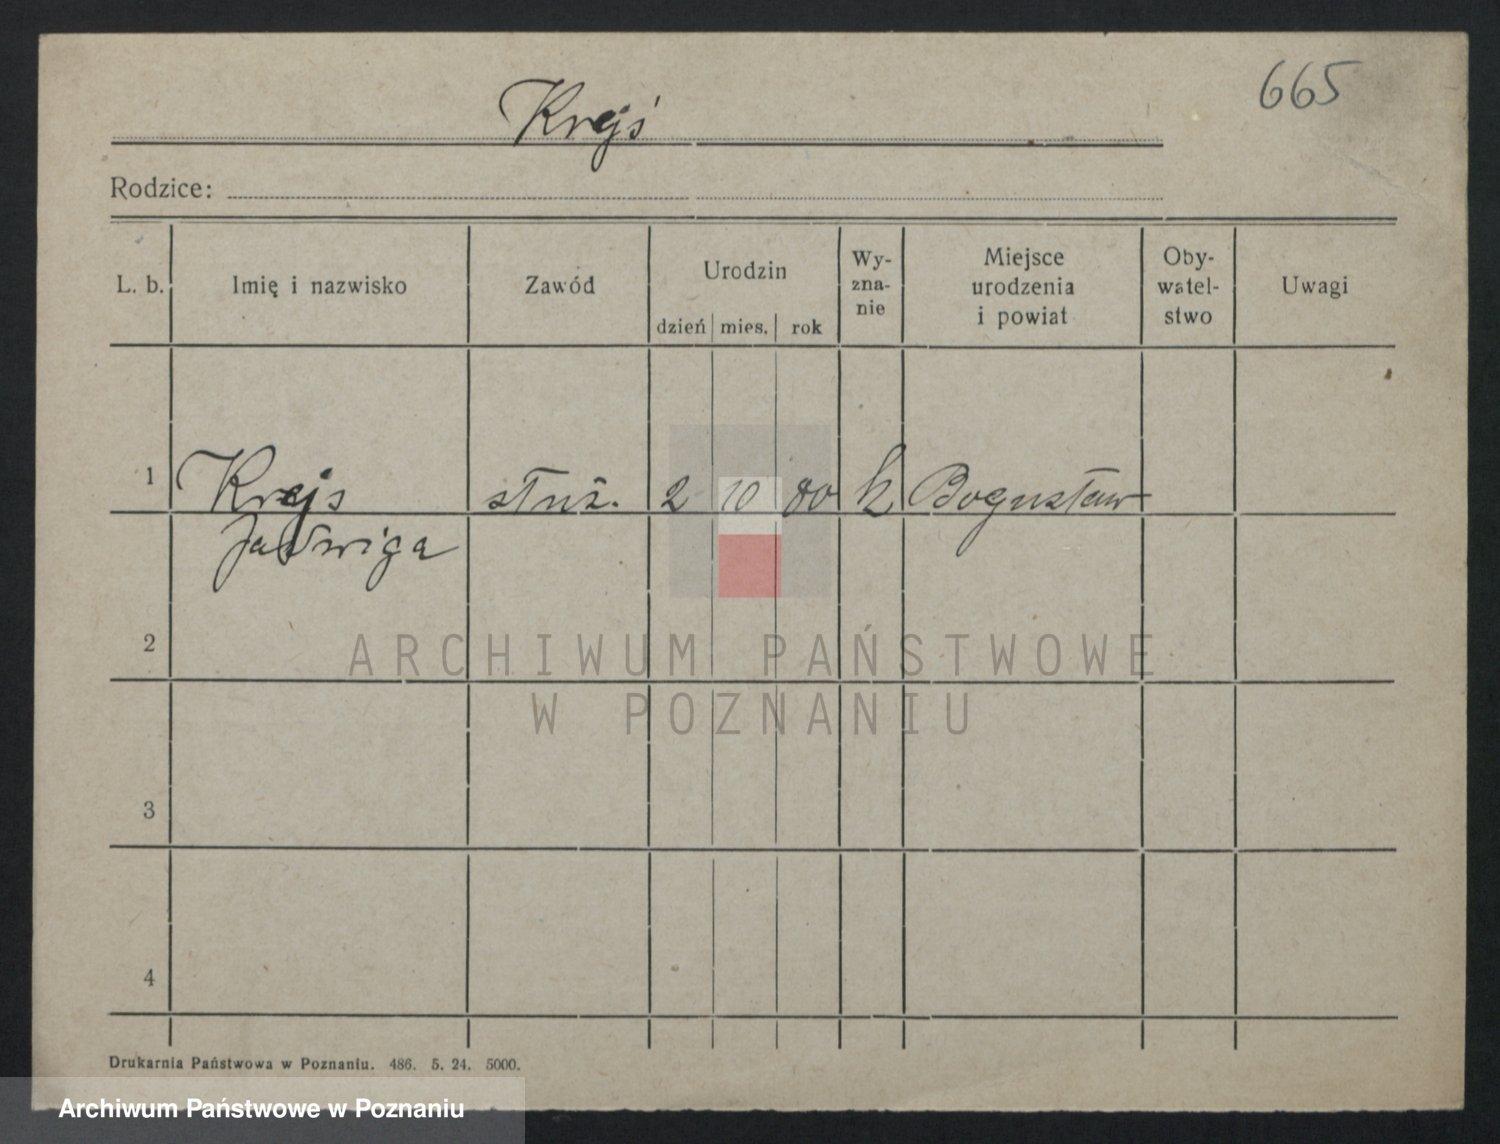 665
Krejś
Rodzice:
L. b. Imię i nazwisko Zawód Urodzin dzień mies. rok Wy-zna-nie Miejsce urodzenia i powiat Oby-watel-stwo Uwagi
1 Krejs służ. 2 10 80 k Bogusław
Jadwiga
2
ARCHIWUM PAŃSTWOWE
W POZNANIU
3
4
Drukarnia Państwowa w Poznaniu. 486. 5. 24. 5000.
Archiwum Państwowe w Poznaniu